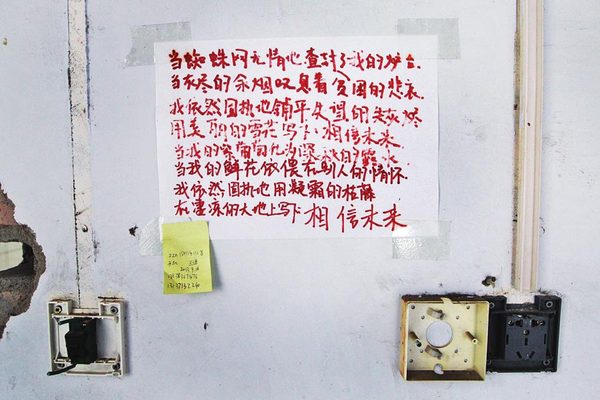 当蜘蛛网无情地查封了我的炉台
当灰烬的余烟叹息着贫困的悲哀
我依然固执地铺平失望的灰烬
用美丽的雪花写下：相信未来
当我的紫葡萄化为深秋的露水
当我的鲜花依偎在别人的情怀
我依然固执地用凝霜的枯藤
在凄凉的大地上写下 相信未来